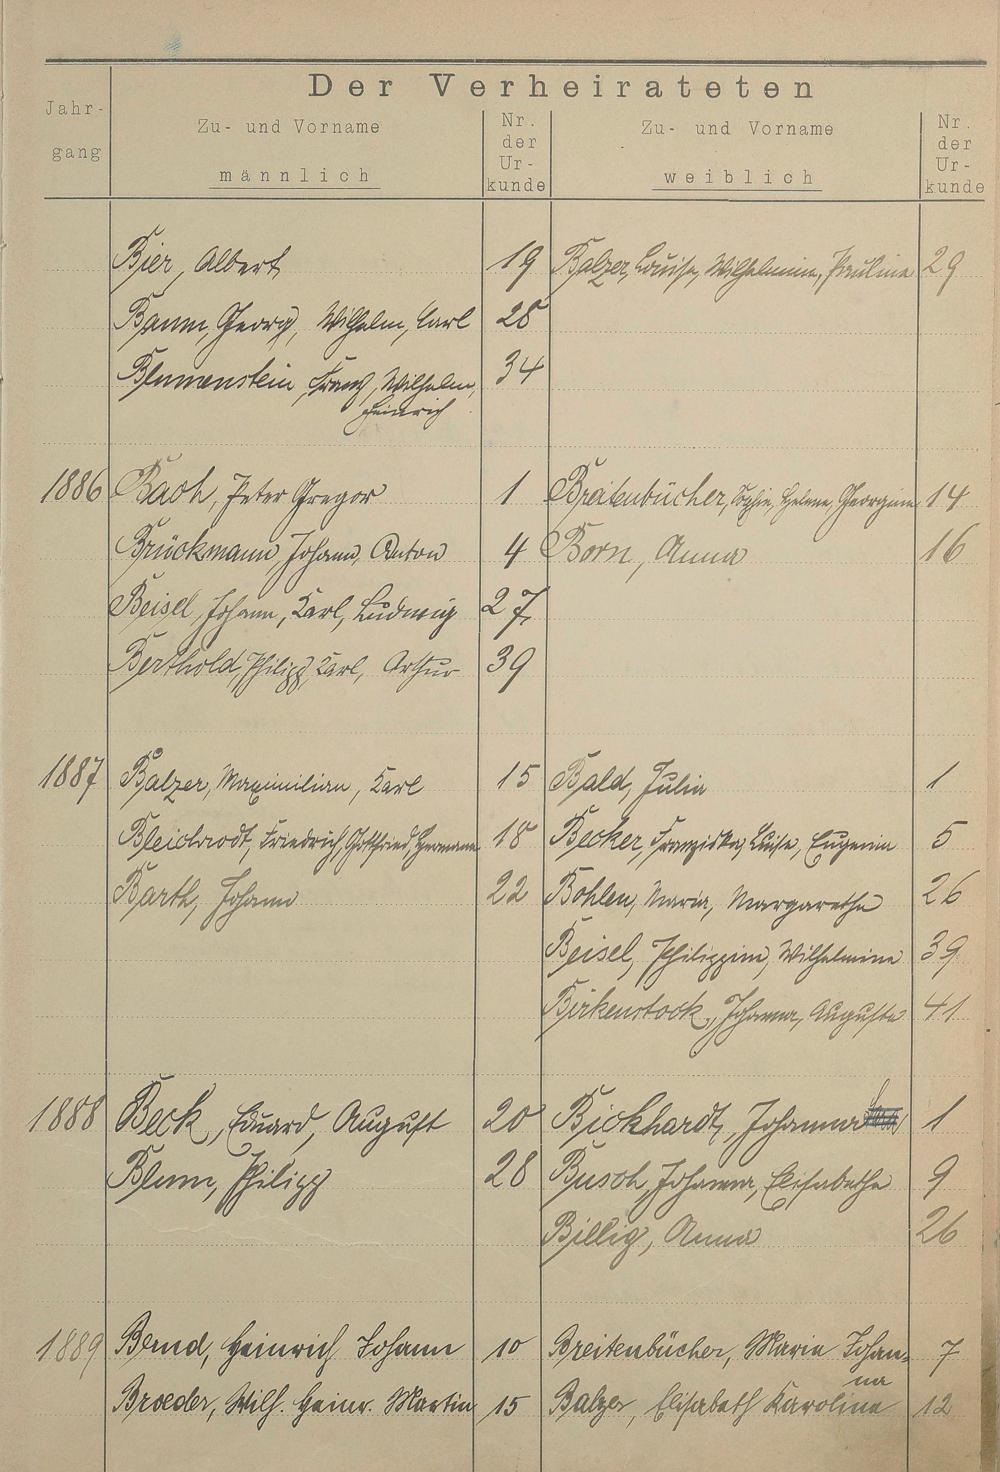 Der Verheirateten
Jahr-
gang
Zu- und Vorname
männlich
Nr.
der
Ur-
kunde
Zu- und Vorname
weiblich
Nr.
der
Ur-
kunde
Bier, Albert 19 Balzer, Louise, Wilhelmine, Pauline 29
Baum, Georg, Wilhelm, Carl 28
Blumenstein, Franz, Wilhelm, 34
Heinrich
1886 Bach, Peter Gregor 1 Breitenbücher, Sophie, Helene, Georgine 14
Brückmann, Johann, Anton 4 Born, Anna 16
Beisel, Johann, Karl, Ludwig 27
Berthold, Philipp, Karl, Arthur 39
1887 Balzer, Maximilian, Karl 15 Bald, Julia 1
Bleichrodt, Friedrich, Gottfried, Hermann 18 Becker, Franziska, Luise, Eugenia 5
Barth, Johann 22 Bohlen, Maria, Margarethe 26
Beisel, Philippine, Wilhelmine 39
Birkenstock, Johanna, Auguste 41
1888 Beck, Eduard, August 20 Bickhardt, Johanna 1
Blum, Philipp 28 Busch, Johanna, Elisabetha 9
Billig, Anna 26
1889 Bernd, Heinrich Johann 10 Breitenbücher, Maria Johan- 7
na
Broeder, Wilh. Heinr. Martin 15 Balzer, Elisabeth Karoline 12